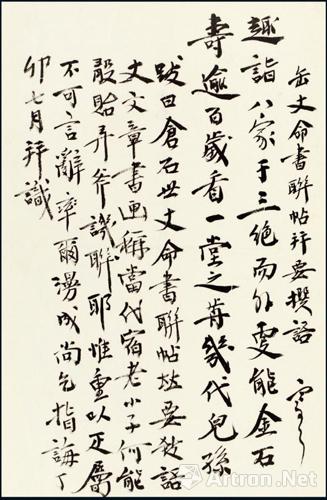 缶丈命書聯帖并要撰語
趣詣八家于三絕而外更能金石
壽逾百歲看一堂之首幾代兒孫
跋曰倉石世丈命書聯帖並要撰語
丈文章書画稱當代宿老小子何能
殽貽弄斧譏聯耶惟重以疋屬
不可言辭率爾漫成尚乞指誨丁
卯七月拜識
Artron.Net